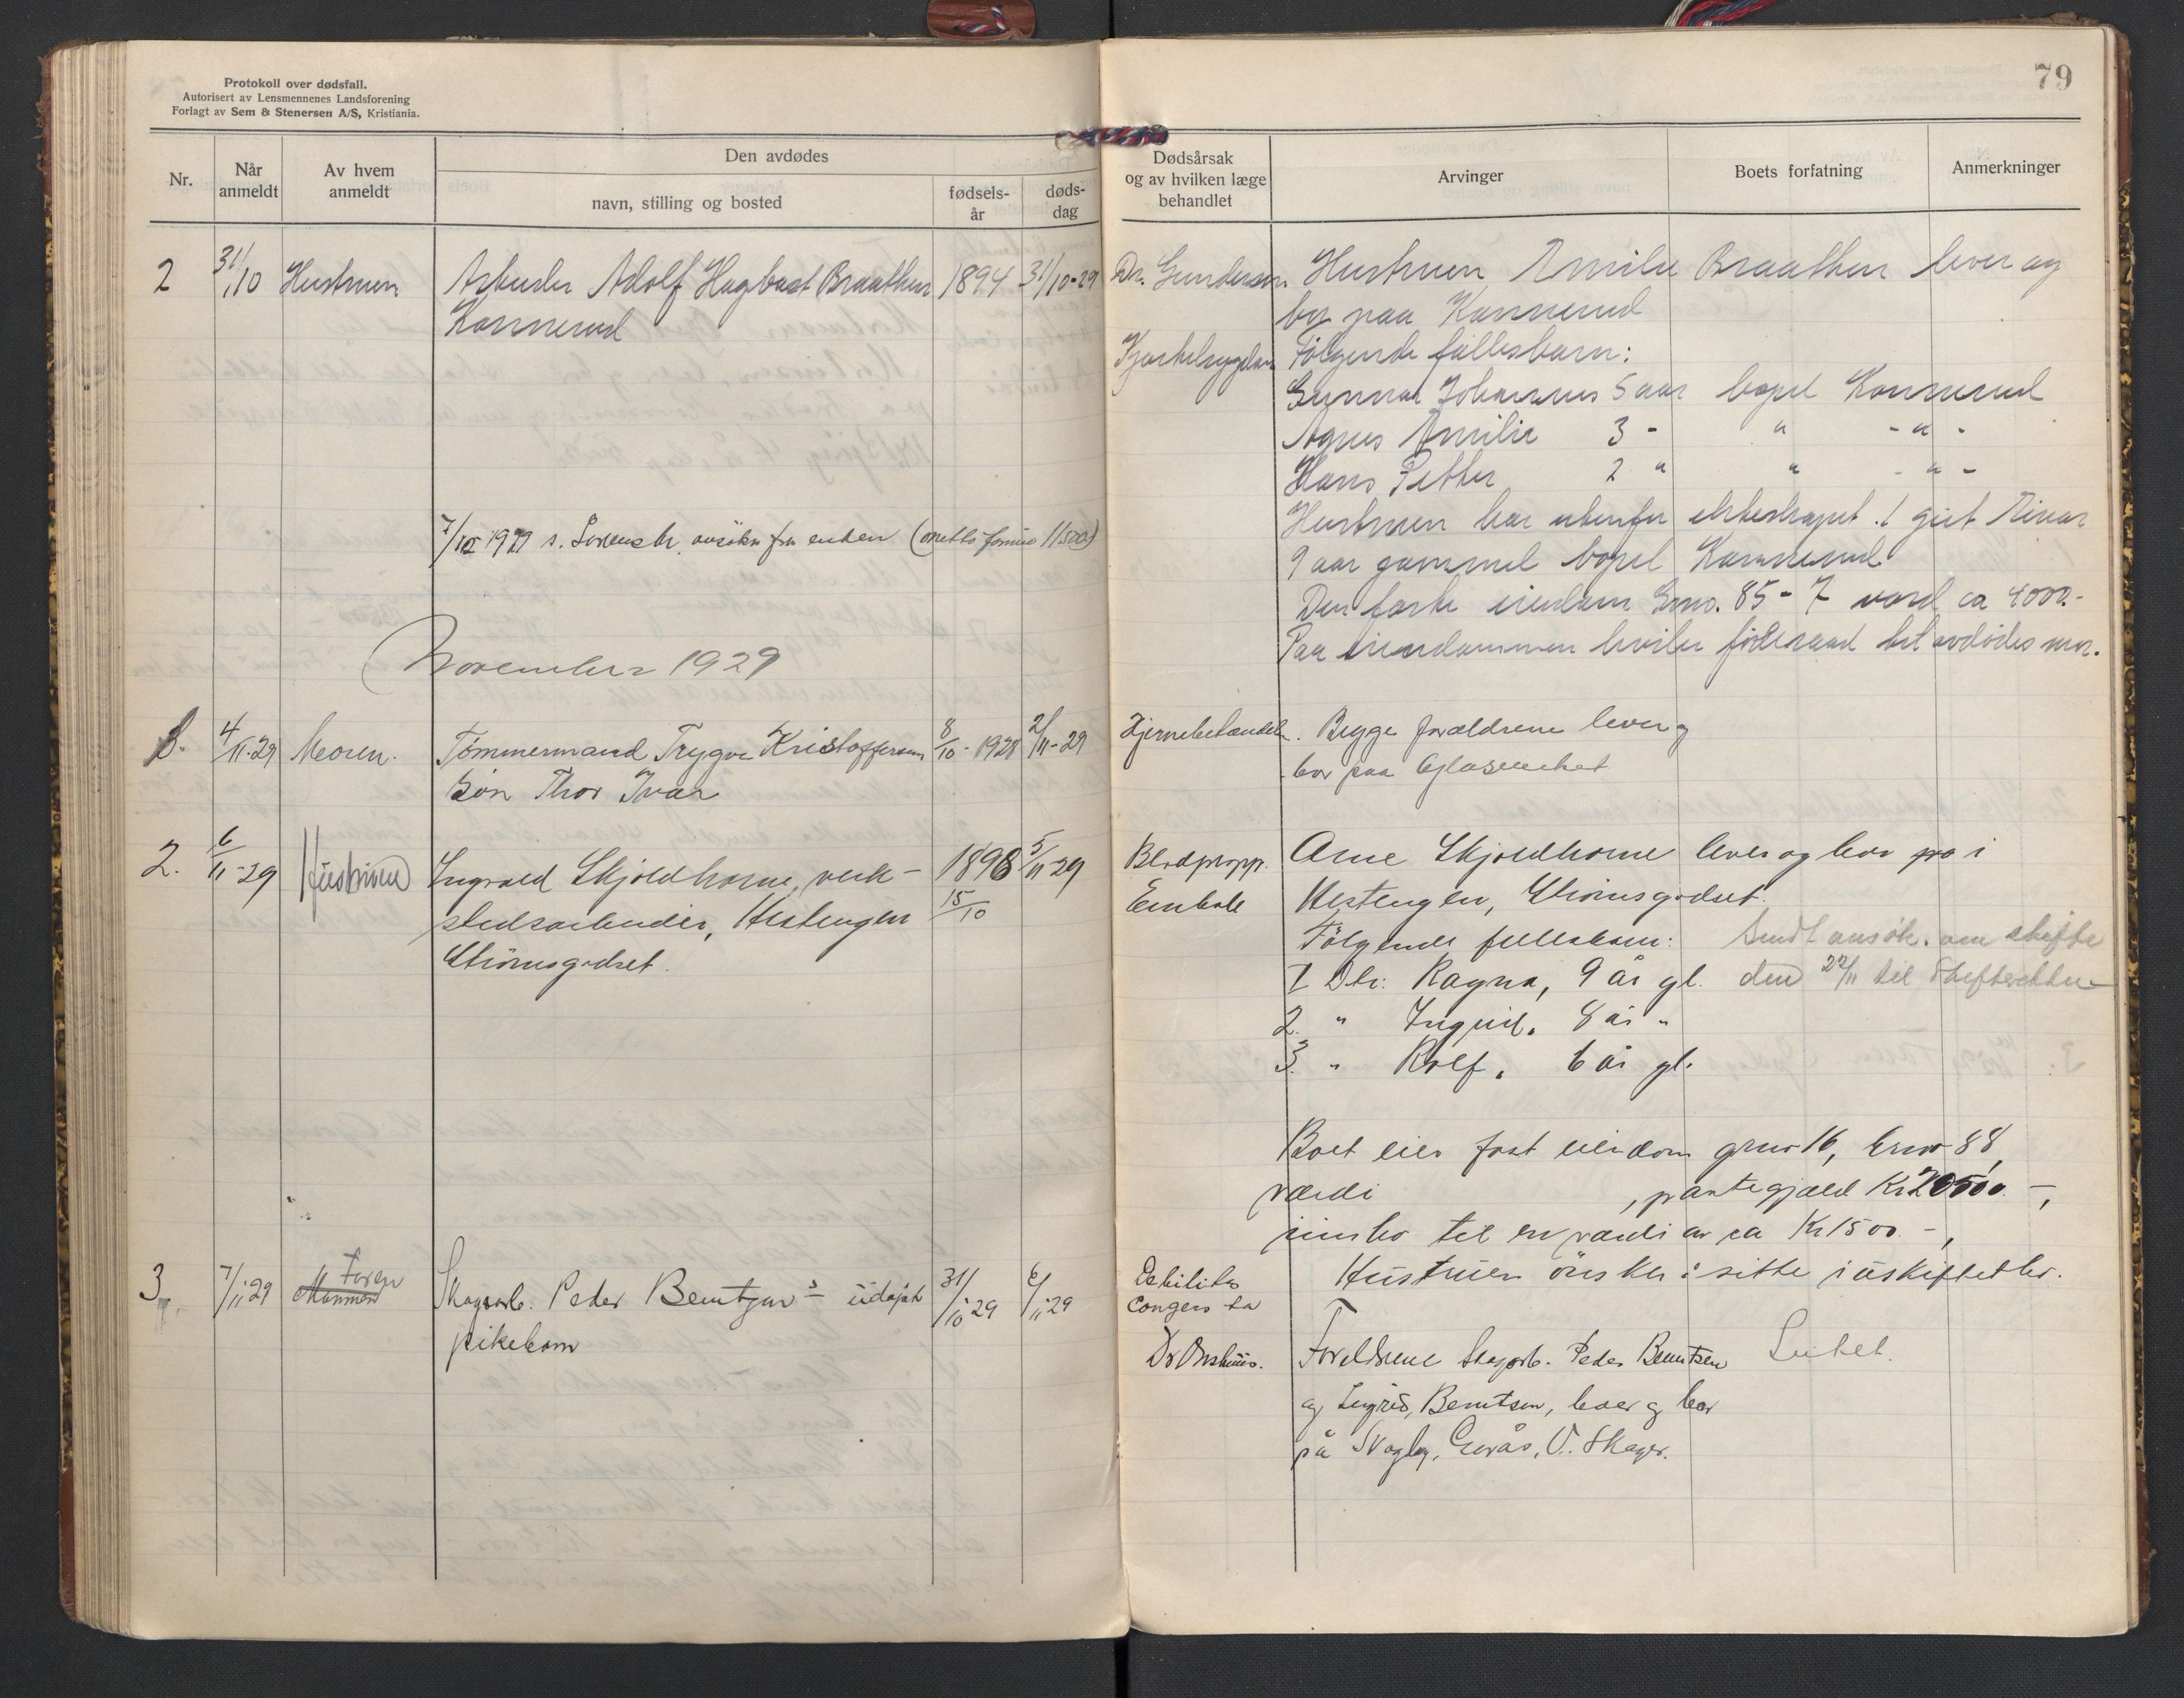 Protokoll over dødsfall.
Autorisert av Lensmennenes Landsforening
Forlagt av Sem & Stenersen A/S, Kristiania.
Nr.
Når anmeldt
Av hvem anmeldt
Den avdødes
navn, stilling og bosted
fødsels-
år
døds-
dag
2 31/10 Hustruen Arbeider Adolf Hagbart Braathen 1894 31/10-29
Konnerud
7/12 1929 s. Sorenskr. ansøkn fra enken (netto formue 11500)
November 1929
1. 4/11-29 Moren. Tømmermand Trygve Kristoffersens 8/10-1928 2/11-29
Søn Thor Ivar
2. 6/11-29 Hustruen Ingvald Skjoldhorne, verk- 1898 5/11-29
stedsarbeider, Hestengen 15/10
Strømsgodset.
3. 7/11 29 Mannen Faren Skogsarb. Peder Berntzen's udøpt 31/10 29 6/11 29
pikebarn
79
Dødsårsak
og av hvilken læge
behandlet
Arvinger
Boets forfatning
Anmerkninger
Dr. Gundersen Hustruen Emilie Braathen lever og
bor paa Konnerud
Følgende fællesbarn:
Gunnar Johannes 5 aar bopel Konnerud
Agnes Emilie 3 - " - " -
Hans Petter 2 " " - " -
Hustruen har utenfor ekteskapet 1 gut Einar
9 aar gammel bopel Konnerud
Den faste eiendom Gno. 85 - 7 værd ca 4000.-
Paa eiendommen hviler føderaad til avdødes mor.
Hjernebetændelse. Begge forældrene lever og
bor paa Glasverket
Blodpropp. Arne Skjoldhorne lever og bor pa i
Embole Hestengen, Strømsgodset.
Følgende fellesbarn: Sendt ansøk. om skifte
1 Dtr: Ragna, 9 år gl. den 22/11 til Skifteretten
2. " Ingrid, 8 år "
3. " Rolf, 6 år gl.
Boet eier fast eiendom gnr 16, bno 88,
værdi , pantegjæld Kr 20500.-,
innbo til en værdi av ca Kr 1500.-,
Hustruen ønsker å sitte i uskiftet bo.
Debilitas
congenita
Dr Onshuus. Foreldrene Skogsarb. Peder Berntsen Intet.
og Ingrid Berntsen, lever og bor
på Skogly, Gerås, V. Skoger.